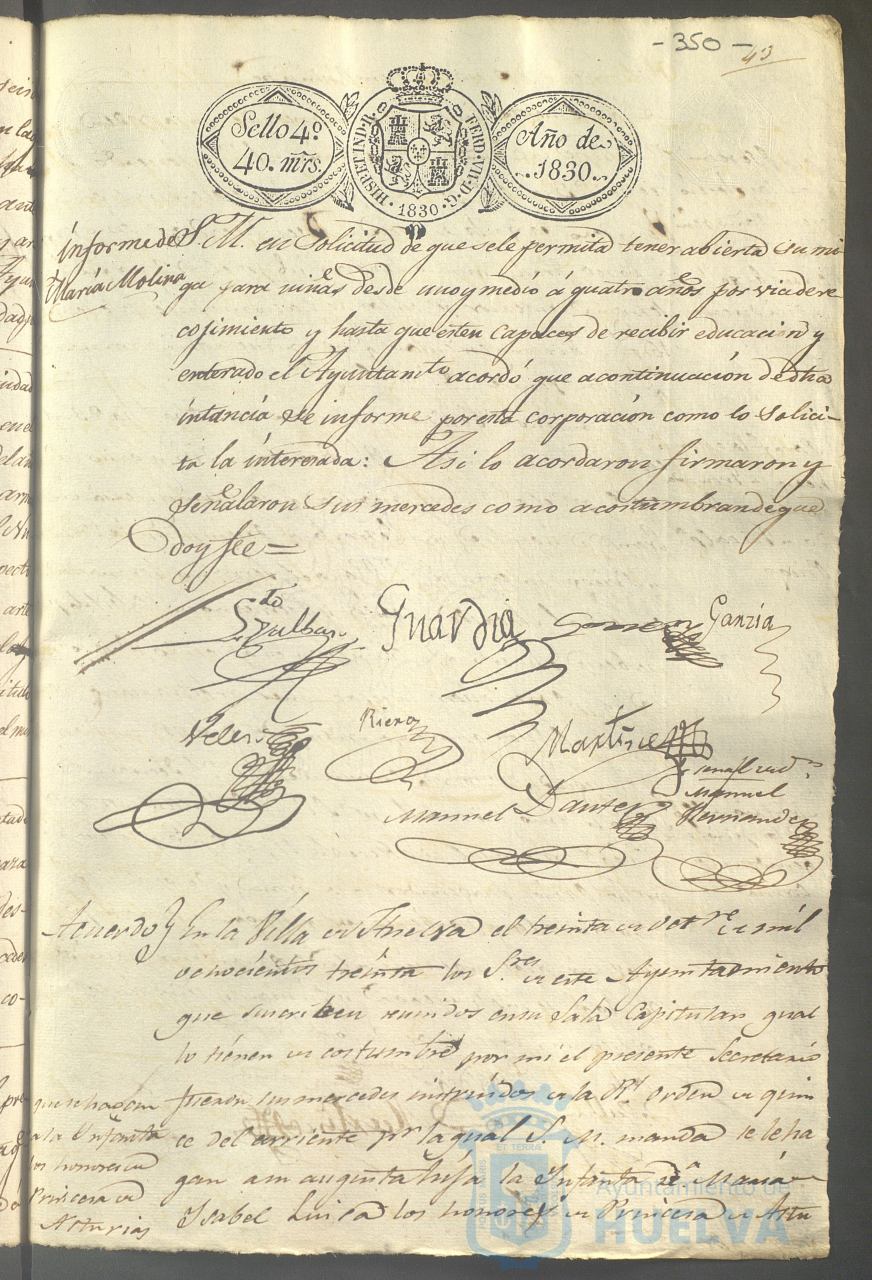 - 350 -
43
Sello 4º
40. mrs.
HISP. ET IND. R.
FERD. VII. D. G.
1830
Año de
1830.
Informe de
María Molina
S. M. en Solicitud de que se le permita tener abierta su mi
ga para niñas desde uno y medio á quatro años por via de re
cojimiento y hasta que esten capaces de recibir educacion y
enterado el Ayuntamto acordó que a continuación de dha
intancia se informe por esta corporación como lo solici-
ta la interesada: Asi lo acordaron firmaron y
señalaron sus mercedes como acostumbran de que
doy fee =
Guardia
Garzía
Velez
Riero
Martinez
Manuel Dante
Manuel
Hernandez
Acuerdo
En la Villa de Huelva el treinta de Octre de mil
ochocientos treinta los Sres de este Ayuntamiento
que suscriben reunidos en su Sala Capitular qual
lo tienen de costumbre por mi el presente Secretario
fueron sus mercedes instruidos de la Rl orden de quin
ce del corriente pr la qual S. M. manda se le ha
gan a su augusta hija la Infanta Da María
Isabel Luisa los honores de Princesa de Astu
que se hagan
a la Infanta
los honores de
Princesa de
Asturias
Ayuntamiento de
HUELVA